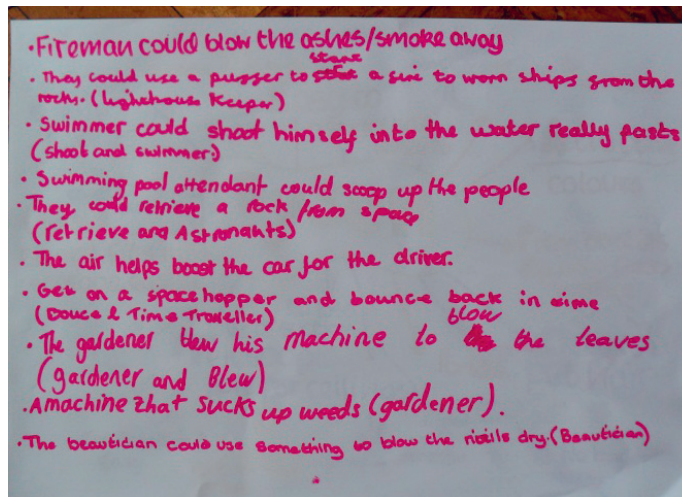 • Fireman could blow the ashes/smoke away
start
• They could use a puffer to a fire to worn ships from the
rocks. (lighthouse Keeper)
• Swimmer could shoot himself into the water really fasts
(shoot and swimmer)
• Swimming pool attendant could scoop up the people
• They could retrieve a rock from space
(retrieve and Astronants)
• The air helps boost the car for the driver.
• Get on a space hopper and bounce back in time
(Bouce & Time Traveller)
blow
• The gardener blew his machine to the leaves
(gardener and Blew)
• A machine that sucks up weeds (gardener).
• The beautician could use something to blow the nails dry. (Beautician)